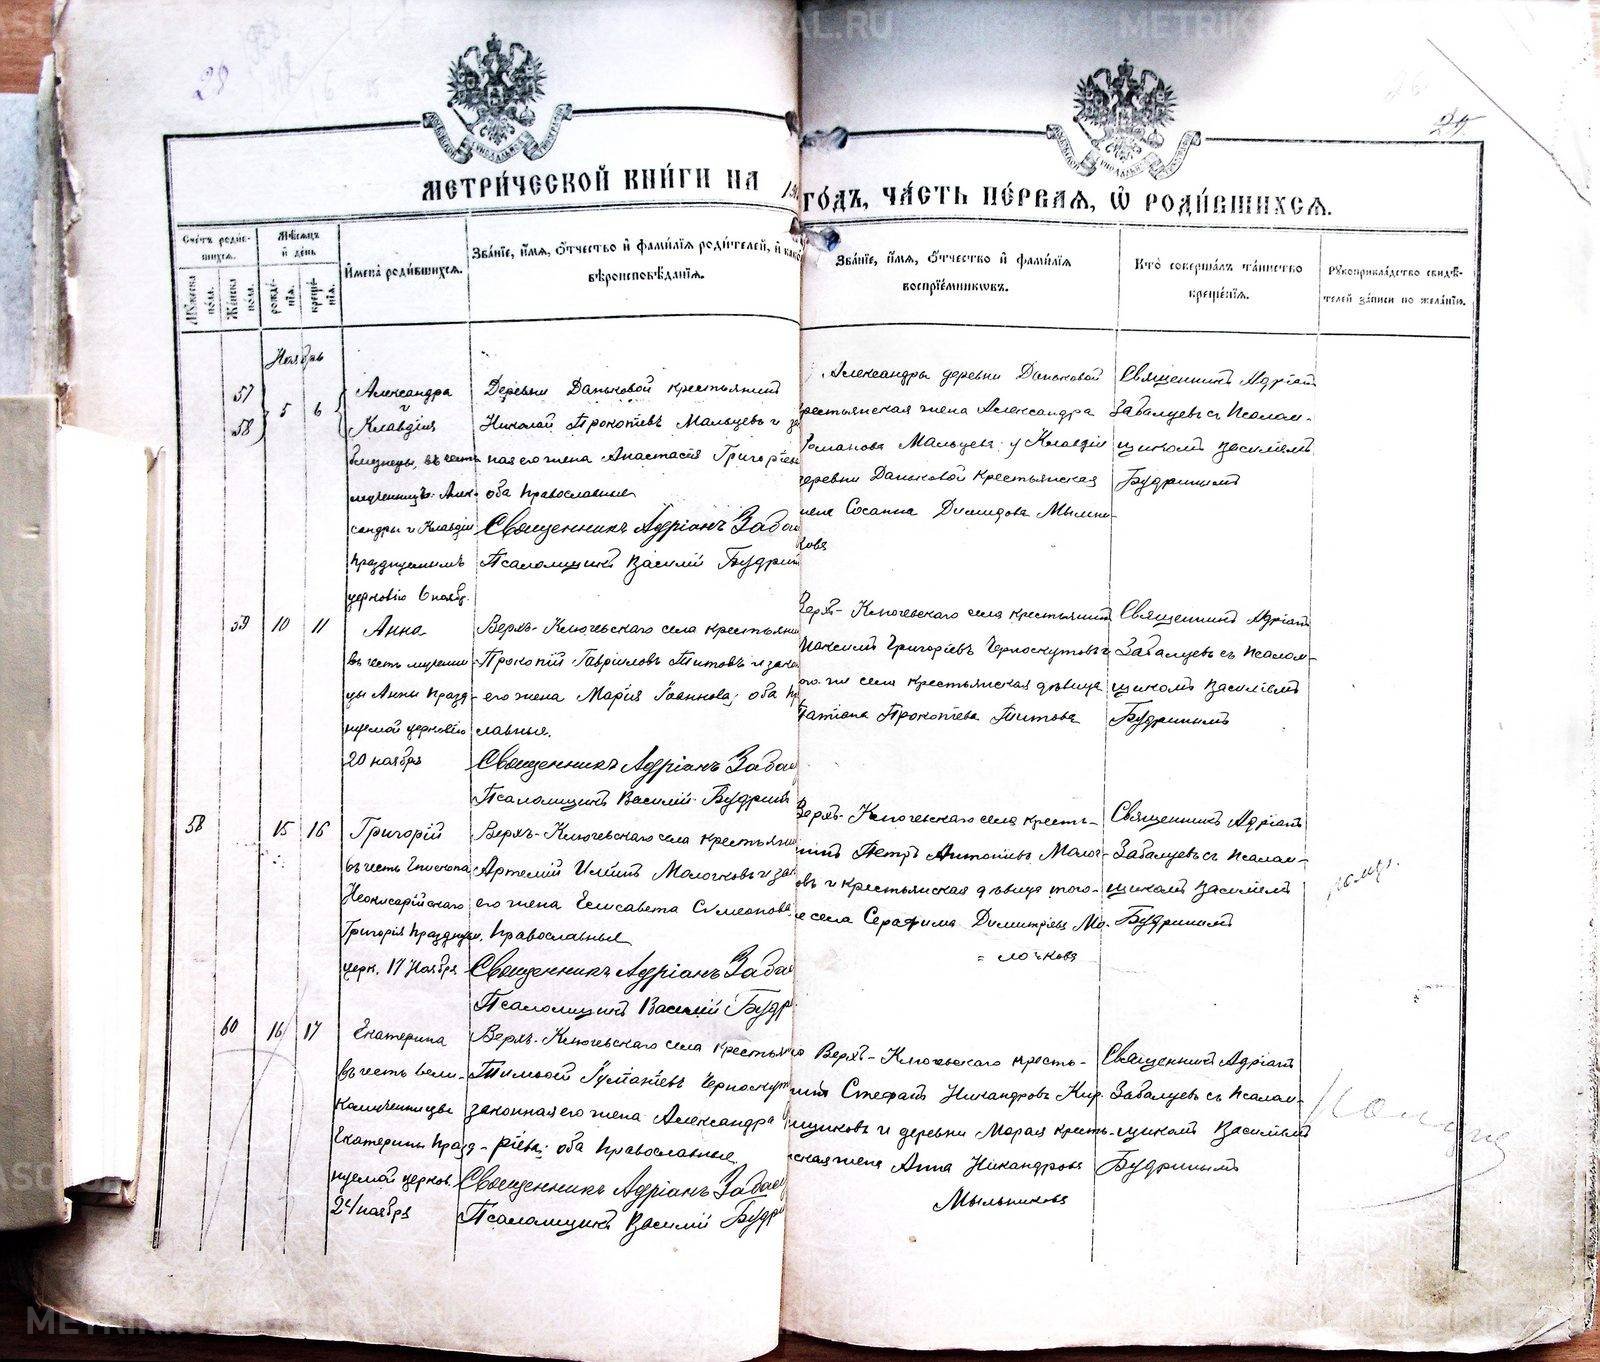 29
25
МЕТРИ́ЧЕСКОЙ КНИ́ГИ НА
ГО́ДЪ, ЧА́СТЬ ПЕ́РВАЯ, Ѡ РОДИ́ВШИХСЯ.
Сче́тъ роди́в-
шихся.
Му́жеска по́ла.
Же́нска по́ла.
Мѣ́сяцъ
и де́нь
рожде́-
нія.
креще́-
нія.
Имена̀ роди́вшихся.
Зва́ніе, и́мя, о́тчество и фами́лія роди́телей, и како
вѣроисповѣ́данія.
Зва́ніе, и́мя, о́тчество и фами́лія
воспріе́мниковъ.
Кто̀ соверша́лъ та́инство
креще́нія.
Рукоприкла́дство свидѣ́-
телей за́писи по жела́нію.
Ноябрь
57
58
5
6
Александра
и
Клавдія
близнецы, въ честь
мученицъ Алек-
сандры и Клавдіи
празднуемыхъ
церковію 6 нояб.
Деревни Даньковой крестьянинъ
Николай Прокопіевъ Мальцевъ и за
ная его жена Анастасія Григоріева
оба православные
Священникъ Адріанъ Забал
Псаломщикъ Василій Будрин
Александры деревни Даньковой
крестьянская жена Александра
Романова Мальцева; у Клавдіи
деревни Даньковой крестьянская
жена Сосанна Димидова Мыльни-
кова
Священникъ Адріанъ
Забалуевъ съ Псалом-
щикомъ Василіемъ
Будринымъ
59
10
11
Анна
въ честь мучени-
цы Анны празд-
нуемой церковію
20 ноября
Верхъ-Ключевскаго села крестьянин
Прокопій Гавриловъ Титовъ и зако
его жена Марія Іоаннова; оба пр
славные.
Священникъ Адріанъ Забал
Псаломщикъ Василій Будринъ
Верхъ-Ключевскаго села крестьянинъ
Максимъ Григоріевъ Черноскутовъ и
ого же села крестьянская дѣвица
Татіана Прокопіева Титова
Священникъ Адріанъ
Забалуевъ съ Псалом-
щикомъ Василіемъ
Будринымъ
58
15
16
Григорій
въ честь Епископа
Неокесарійскаго
Григорія празднуем.
церк. 17 Ноября
Верхъ-Ключевскаго села крестьянин
Артемій Ильинъ Молочковъ и зак
его жена Елисавета Симеонова
православные
Священникъ Адріанъ Забал
Псаломщикъ Василій Будр
Верхъ-Ключевскаго села кресть-
нинъ Петръ Антоніевъ Молоч-
овъ и крестьянская дѣвица того-
е села Серафима Димитріева Мо-
= лочкова
Священникъ Адріанъ
Забалуевъ съ Псалом-
щикомъ Василіемъ
Будринымъ
60
16
17
Екатерина
въ честь вели-
комученицы
Екатерины празд-
нуемой церков.
24 ноября
Верхъ-Ключевскаго села крестьян
Тимофей Игнатіевъ Черноскут
законная его жена Александра
ріева; оба православные
Священникъ Адріанъ Забал
Псаломщикъ Василій Будри
Верхъ-Ключевскаго кресть-
нинъ Стефанъ Никандровъ Кир-
пищиковъ и деревни Марая кресть-
ская жена Анна Никандрова
Мыльникова
Священникъ Адріанъ
Забалуевъ съ Псалом-
щикомъ Василіемъ
Будринымъ